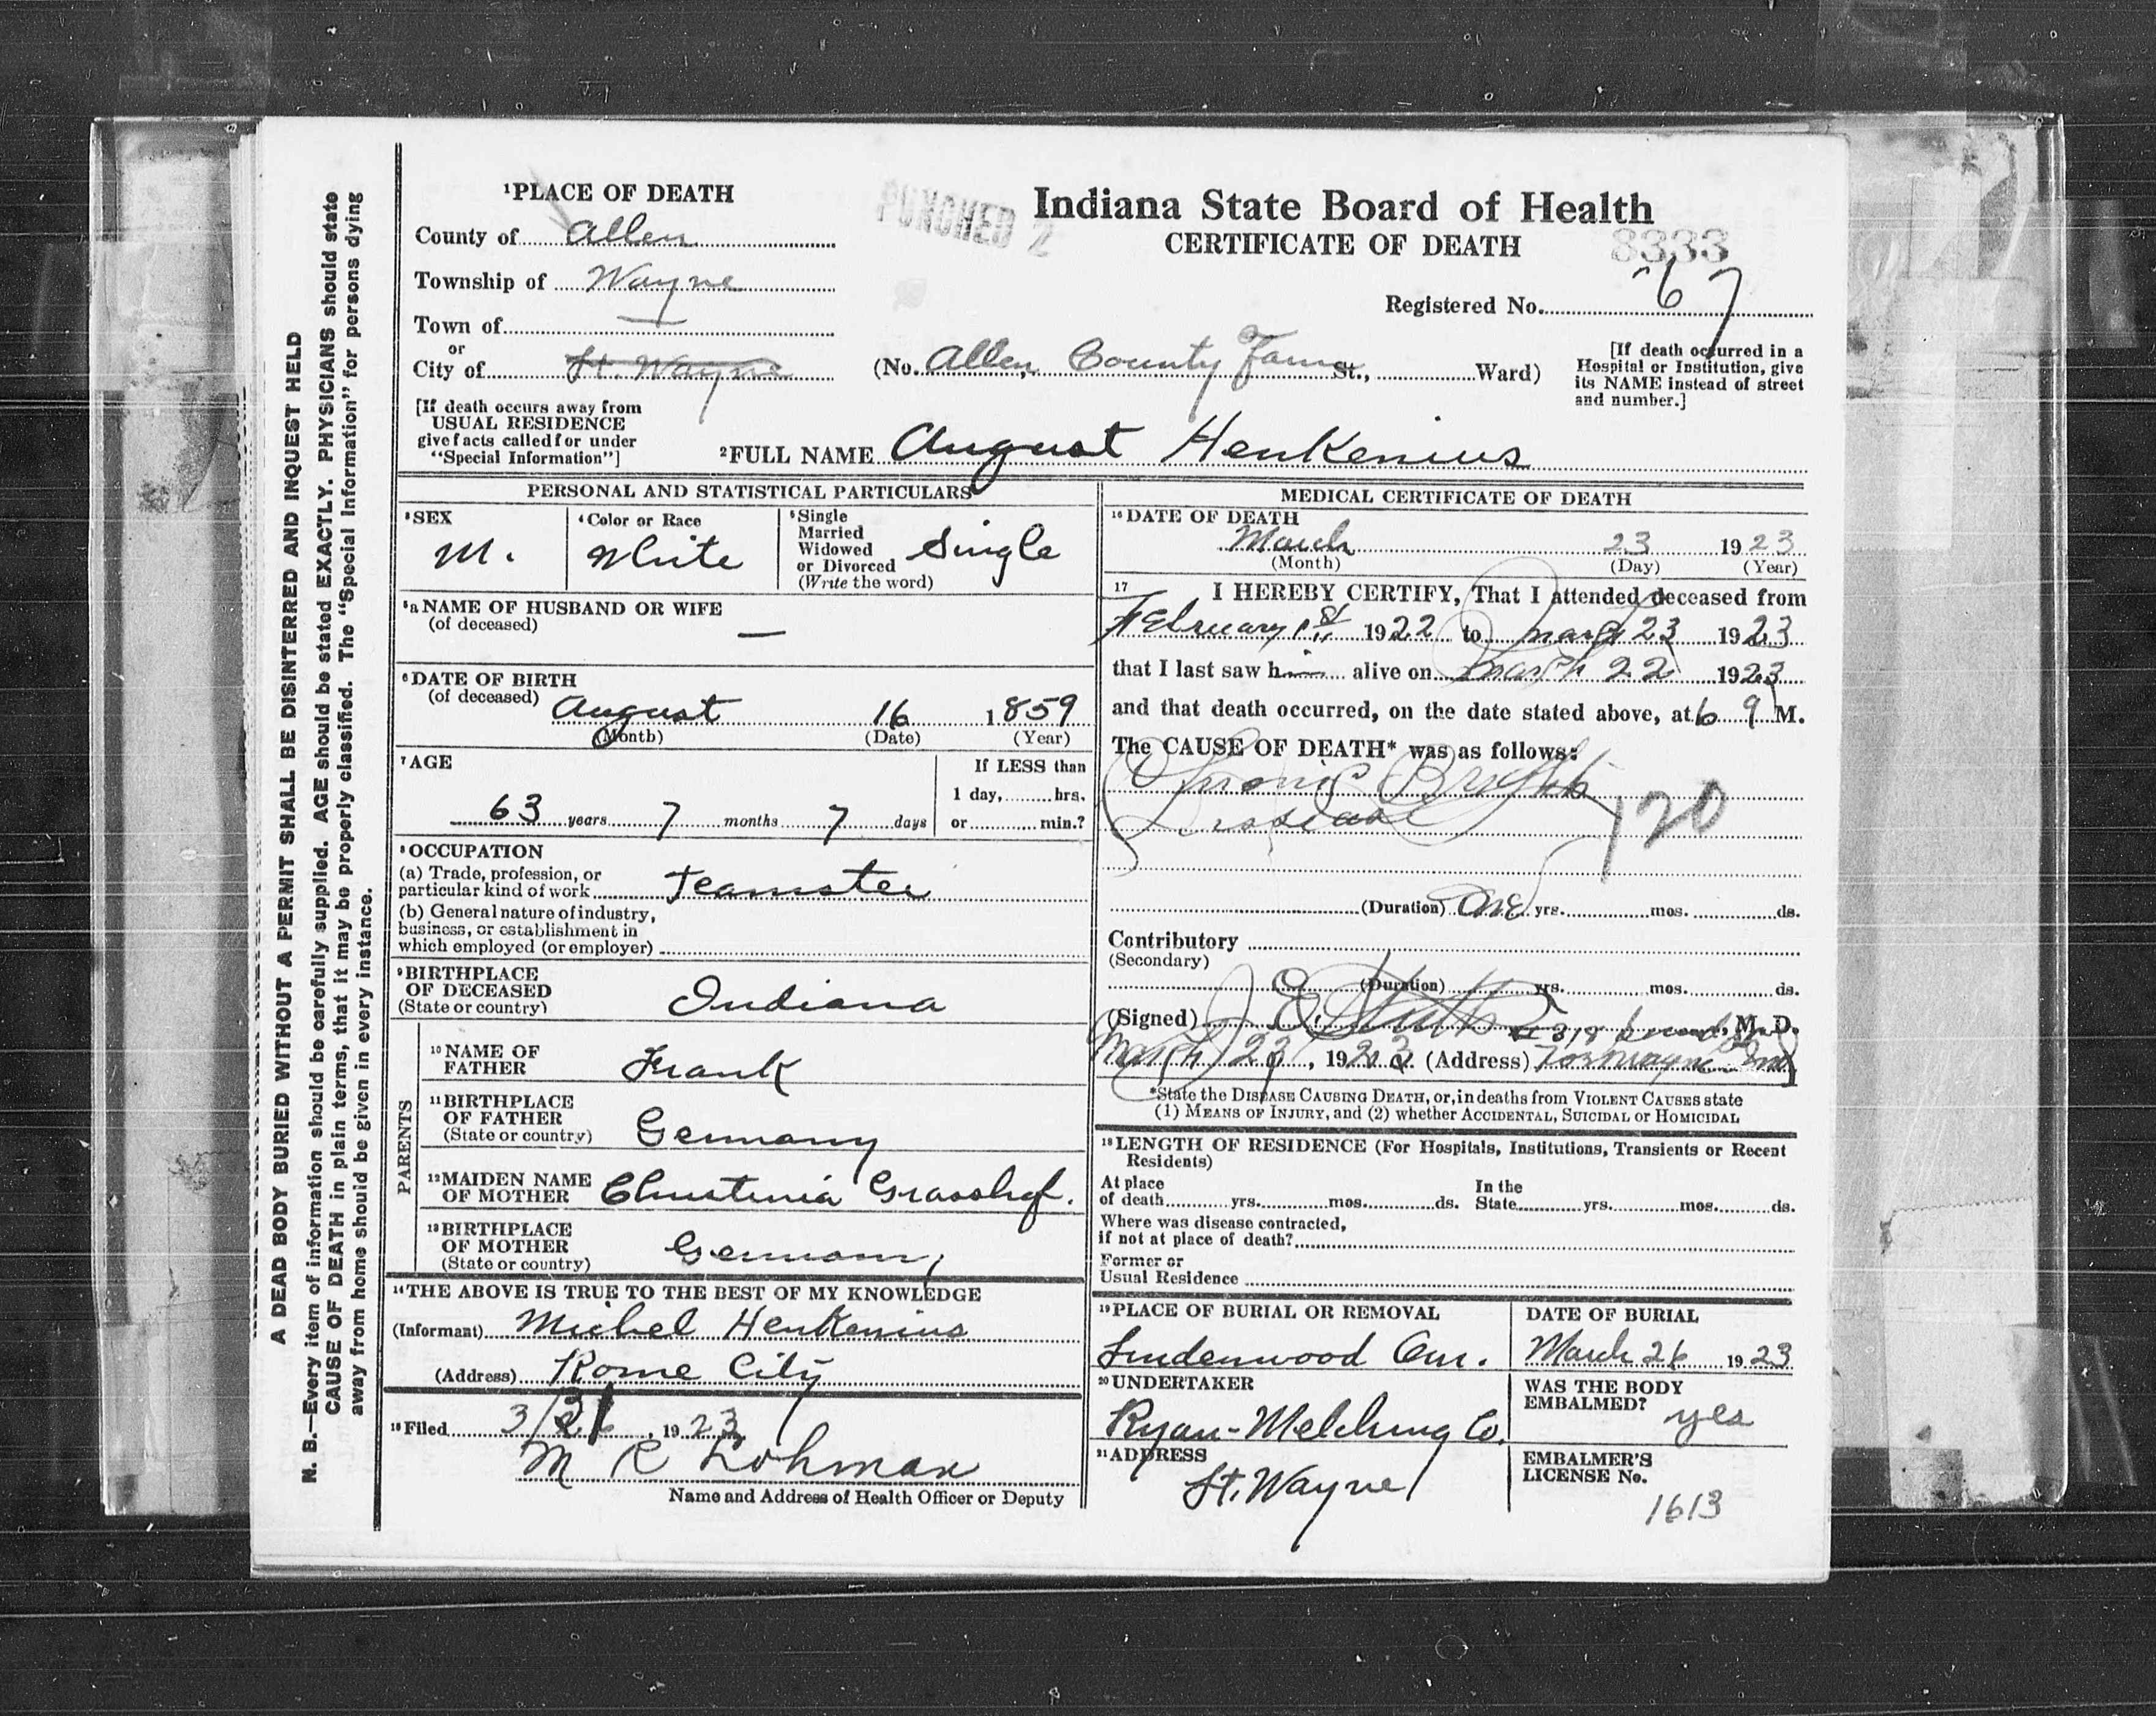 A DEAD BODY BURIED WITHOUT A PERMIT SHALL BE DISINTERRED AND INQUEST HELD
N. B.—Every item of information should be carefully supplied. AGE should be stated EXACTLY. PHYSICIANS should state
CAUSE OF DEATH in plain terms, that it may be properly classified. The "Special Information" for persons dying
away from home should be given in every instance.
PUNCHED 2
Indiana State Board of Health
CERTIFICATE OF DEATH
8333
Registered No. 67
1 PLACE OF DEATH
County of Allen
Township of Wayne
Town of —
or
City of Ft. Wayne
(No. Allen County Farm St., Ward)
[If death occurred in a
Hospital or Institution, give
its NAME instead of street
and number.]
[If death occurs away from
USUAL RESIDENCE
give facts called for under
"Special Information"]
2 FULL NAME August Henkenius
PERSONAL AND STATISTICAL PARTICULARS
3 SEX
M.
4 Color or Race
White
5 Single
Married
Widowed
or Divorced
(Write the word)
Single
5a NAME OF HUSBAND OR WIFE
(of deceased)
—
6 DATE OF BIRTH
(of deceased)
August 16 1859
(Month) (Date) (Year)
7 AGE
63 years 7 months 7 days
If LESS than
1 day, hrs.
or min.?
8 OCCUPATION
(a) Trade, profession, or
particular kind of work Teamster
(b) General nature of industry,
business, or establishment in
which employed (or employer)
9 BIRTHPLACE
OF DECEASED
(State or country)
Indiana
PARENTS
10 NAME OF
FATHER
Frank
11 BIRTHPLACE
OF FATHER
(State or country)
Germany
12 MAIDEN NAME
OF MOTHER
Christinia Grasshof.
13 BIRTHPLACE
OF MOTHER
(State or country)
Germany
14 THE ABOVE IS TRUE TO THE BEST OF MY KNOWLEDGE
(Informant) Michel Henkenius
(Address) Rome City
15 Filed 3/ 1923
M R Lohman
Name and Address of Health Officer or Deputy
MEDICAL CERTIFICATE OF DEATH
16 DATE OF DEATH
March 23 1923
(Month) (Day) (Year)
17 I HEREBY CERTIFY, That I attended deceased from
February 1st 1922 to March 23 1923
that I last saw him alive on March 22 1923
and that death occurred, on the date stated above, at 6 M.
The CAUSE OF DEATH* was as follows:
Chronic Brights
Disease
120
(Duration) One yrs. mos. ds.
Contributory
(Secondary)
(Duration) yrs. mos. ds.
(Signed) J E M. D.
March 23, 1923 (Address) Fort Wayne Ind
*State the DISEASE CAUSING DEATH, or, in deaths from VIOLENT CAUSES state
(1) MEANS OF INJURY, and (2) whether ACCIDENTAL, SUICIDAL or HOMICIDAL
18 LENGTH OF RESIDENCE (For Hospitals, Institutions, Transients or Recent
Residents)
At place
of death yrs. mos. ds.
In the
State yrs. mos. ds.
Where was disease contracted,
if not at place of death?
Former or
Usual Residence
19 PLACE OF BURIAL OR REMOVAL
Lindenwood Cem.
DATE OF BURIAL
March 26 1923
20 UNDERTAKER
Ryan-Melching Co.
WAS THE BODY
EMBALMED?
yes
21 ADDRESS
Ft. Wayne
EMBALMER'S
LICENSE No.
1613